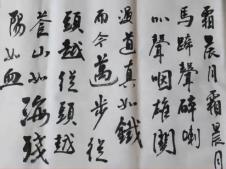 霜晨月霜晨月
馬蹄聲碎喇
叭聲咽雄關
漫道真如鐵
而今邁步從
頭越從頭越
蒼山如海殘
陽如血